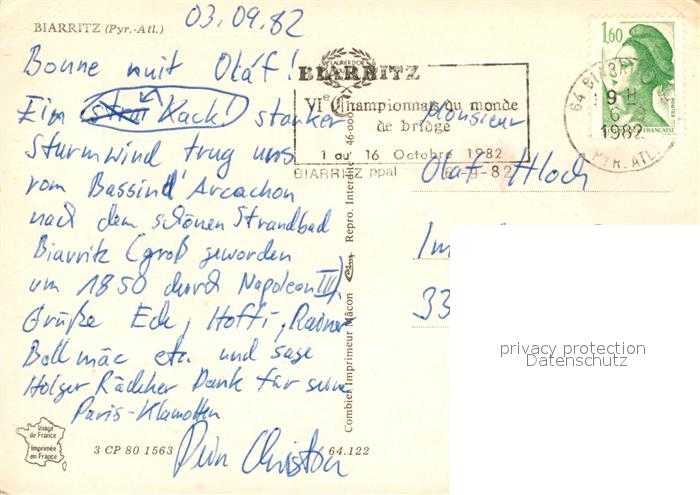 BIARRITZ (Pyr.-Atl.)
03.09.82
Bonne nuit Olaf!
Ein Kack! starker
Sturmwind trug uns
vom Bassin d'Arcachon
nach dem schönen Strandbad
Biarritz (groß geworden
um 1850 durch Napoleon III)
Grüße Eck, Hoffi, Rainer
Bollmäc etc. und sage
Holger Rädeker Dank für seine
Paris-Klamotten
Dein Christon
Image
de France
Imprimée
en France
3 CP 80 1563
64.122
Combier Imprimeur Mâcon
Repro. Interdite 46-000
LAURIER D'OR
BIARRITZ
VIe Championnats du monde
de bridge
1 au 16 Octobre 1982
BIARRITZ ppal 6-9-82
64 BIARRITZ
9 H
6
1982
PYR. ATL.
1,60
POSTES
FRANÇAISE
Monsieur
Olaf Hloch
Im
33
privacy protection
Datenschutz